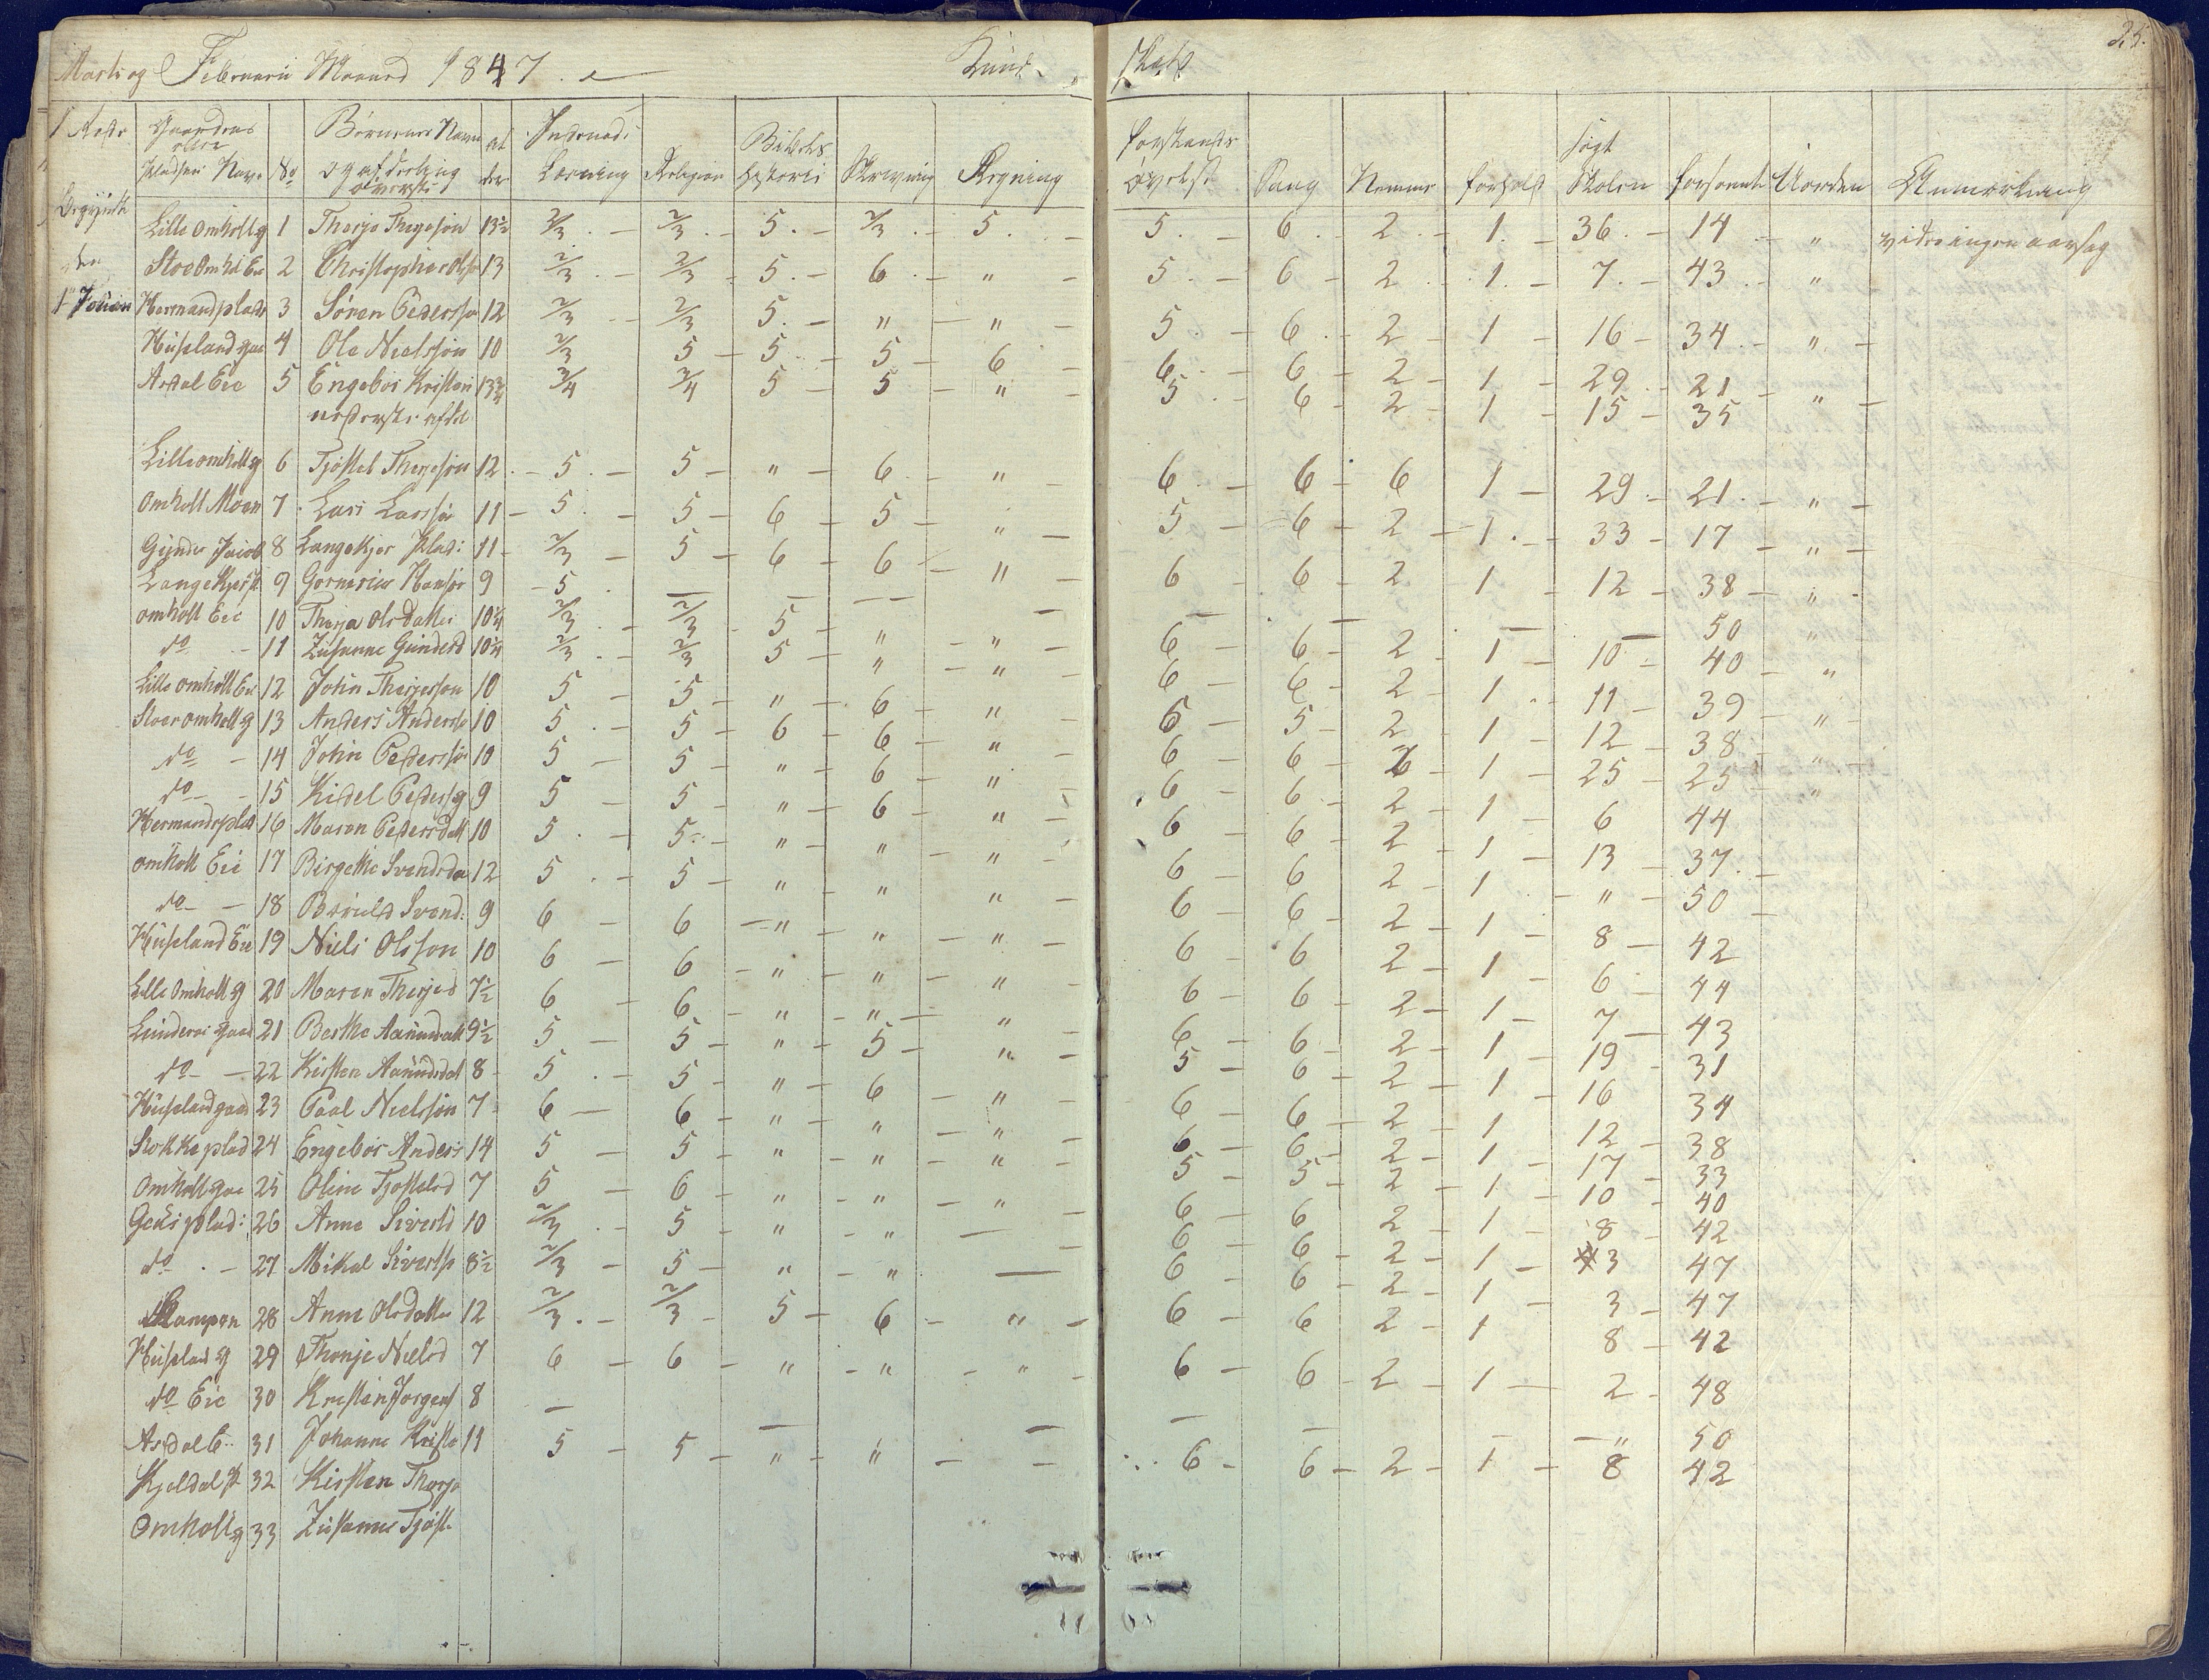 25.
Marti og Februarii Maaned 1847. Kund- skab
Gaardens eller Pladsens Navn No Børnenes Navn og afdeeling øverste al der Indenad: Læsning Religion Bibels Historie Skrivning Regning forstands øvelse Sang Nemme forhold søgt Skolen forsømte Uorden Anmærkning
Lille Omholt g 1 Therje Thergesøn 13½ 2/3 2/3 5 2/3 5 5 6 2 1 36 14 "
Stoe Omhl Eie 2 Christopher Olss 13 2/3 2/3 5 6 " 5 6 2 1 7 43 "
Hermandplads 3 Søren Pedersso 12 2/3 2/3 5 " " 5 6 2 1 16 34 "
Huseland gaa 4 Ole Nielssøn 10 2/3 5 5 5 6 6 6 2 1 29 21 "
Asdal Eie 5 Engebor Kristen 13¾ 3/4 3/4 5 5 " 5 6 2 1 15 35
nederste afdel
Lille omholt g 6 Tjøstel Therjesøn 12 5 5 " 6 " 6 6 6 1 29 21 "
Omholt Moen 7 Lars Larssøn 11 5 5 6 5 " 5 6 2 1 33 17 "
Gunder Jacob 8 Langekjer Plads: 11 2/3 5 6 6 " 6 6 2 1 12 38 "
Langekjer P 9 Gornerius Hansøn 9 5 — — — — — — — 50 "
omholt Eie 10 Therja Olsdatter 10¼ 2/3 2/3 5 " " 6 6 2 1 10 40 "
do 11 Zusanne Gunderd 10¼ 2/3 2/3 5 " " 6 6 2 1 11 39 "
Lille omholt Eie 12 John Therjesson 10 5 5 " 6 " 6 5 2 1 12 38 "
Stoer omholt g 13 Anders Anderss 10 5 5 6 6 " 6 6 2 1 25 25 "
do 14 John Pederssøn 10 5 5 " 6 " 6 6 2 1 6 44
do 15 Kidel Pedersg 9 5 5 " 6 " 6 6 2 1 13 37
Hermandsplad 16 Maren Pedersdatt 10 5 5 " " " 6 6 2 1 " 50
omholt Eie 17 Birgethe Svendsda 12 5 5 " " " 6 6 2 1 8 42
do 18 Beruld Svend: 9 6 6 " " " 6 6 2 1 6 44
Huseland Eie 19 Niels Olsson 10 6 6 " " " 6 6 2 1 7 43
Lille Omholt g 20 Maren Therjed 7½ 6 6 " " " 6 6 2 1 19 31
Lunderoe gaar 21 Berthe Aanundatt 9½ 5 5 " 5 " 5 6 2 1 16 34
do 22 Kirsten Aanundsdat 8 5 5 " 6 " 6 6 2 1 12 38
Huseland gaard 23 Paal Nielsøn 7 6 6 " " " 6 6 2 1 17 33
Stokke plad 24 Engebor Anders 14 5 5 " " " 5 5 2 1 10 40
Omholt gaa 25 Oline Tjøstelsd 7 5 6 " " " 6 6 2 1 8 42
plads: 26 Anne Siverts 10 2/3 5 " " — 6 6 2 1 3 47
do 27 Mikal Sivertss 8½ 2/3 5 " " — 6 6 2 1 3 47
Kampen 28 Anne Olsdatter 12 2/3 2/3 5 6 " 6 6 2 1 8 42
Huseland g 29 Thonje Nielsd 7 6 6 " " " 6 6 2 1 2 48
do Eie 30 Kristen Jorgens 8 — — — — — — " 50
Asdal E 31 Johanne Kristo 11 5 5 " " — 6 6 2 1 8 42
Kjeldal P 32 Kirsten Therje
Omholt g 33 Zusanne Tjøst